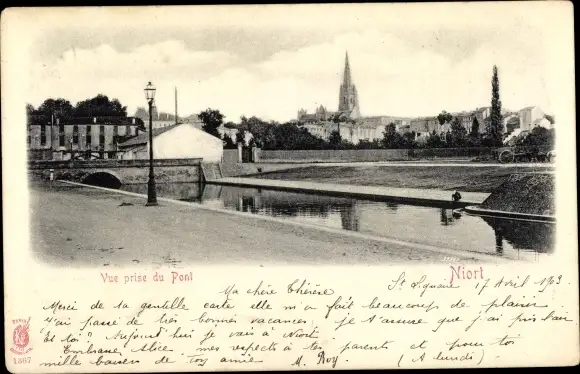 Vue prise du Pont
Niort
Ma chère Thérèse St 17 Avril 1903
Merci de ta gentille carte elle m'a fait beaucoup de plaisir
J'ai passé de très bonnes vacances je t'assure que j'ai pris bau
Et toi? Aujourd'hui je vais à Niort
Embrasse Alice mes respects à tes parents et pour toi
mille baisers de ton amie M. Roy (A lundi)
1367